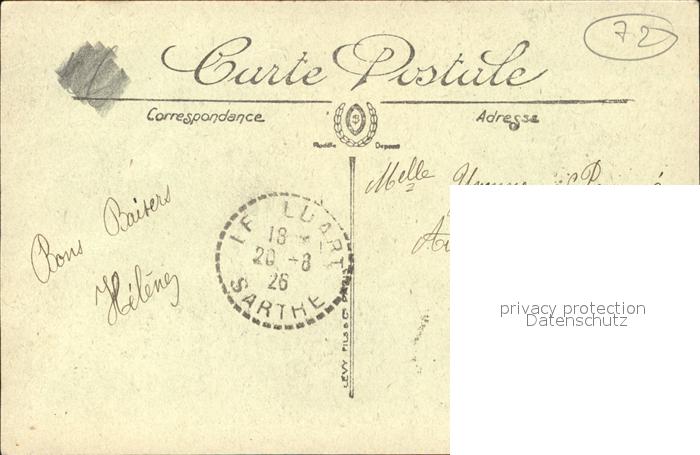 72
Carte Postale
Correspondance
Adresse
Modèle Déposé
Melle
Bons Baisers
Hélène
LE LUART
18
20 -8
26
SARTHE
LÉVY FILS & Cie PARIS
privacy protection
Datenschutz